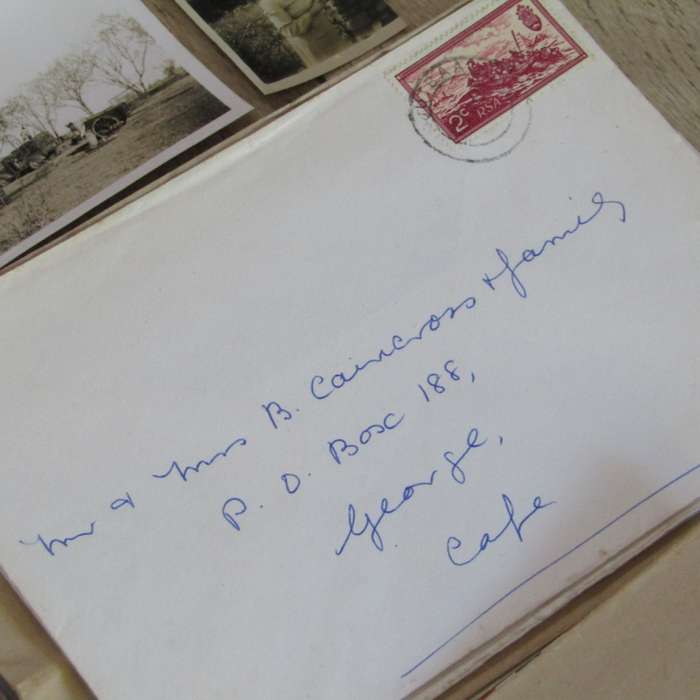 2c RSA
Mr & Mrs B. Cairncross & family
P. O. Box 188,
George,
Cape